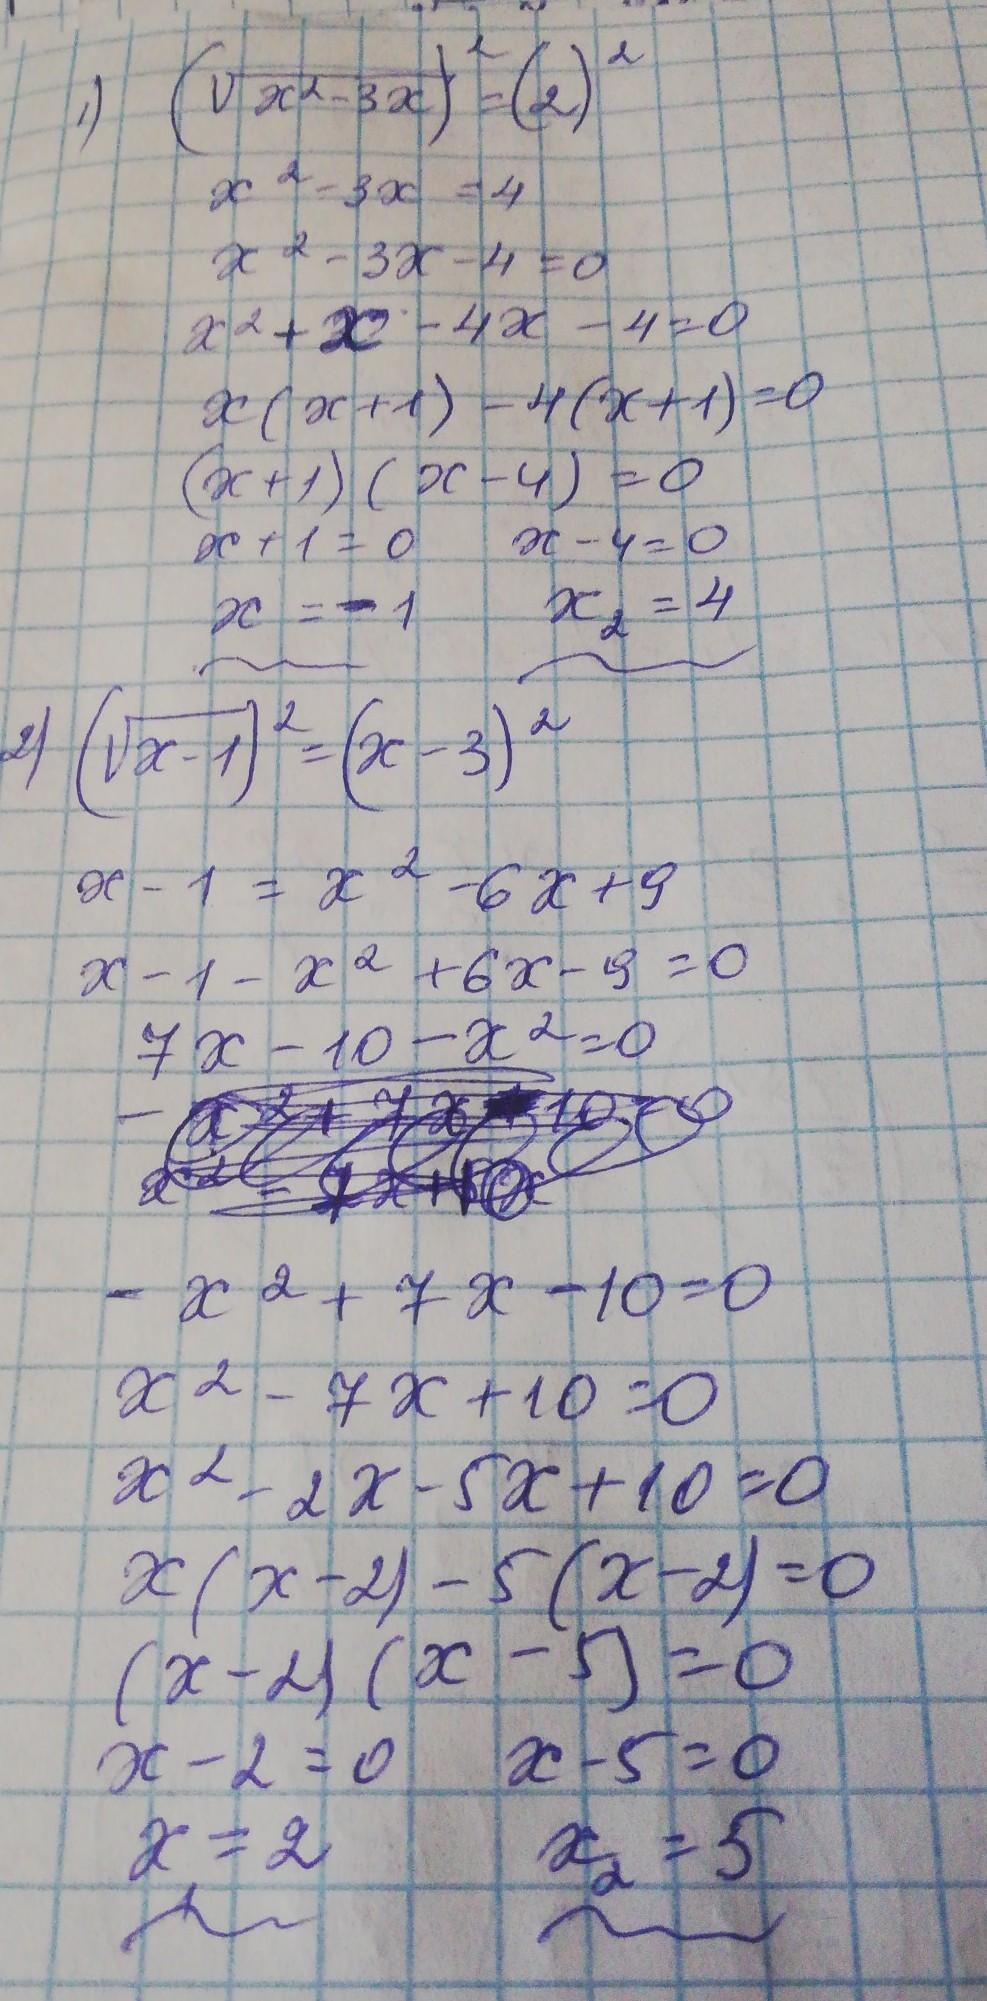 1) (√x²-3x)² = (2)²
x² - 3x = 4
x² - 3x - 4 = 0
x² + x - 4x - 4 = 0
x(x+1) - 4(x+1) = 0
(x+1)(x-4) = 0
x+1 = 0 x-4 = 0
x = -1 x₂ = 4
2) (√x-1)² = (x-3)²
x - 1 = x² - 6x + 9
x - 1 - x² + 6x - 9 = 0
7x - 10 - x² = 0
- x² + 7x - 10 = 0
x² - 7x + 10 = 0
x² - 2x - 5x + 10 = 0
x(x-2) - 5(x-2) = 0
(x-2)(x-5) = 0
x-2 = 0 x-5 = 0
x = 2 x₂ = 5